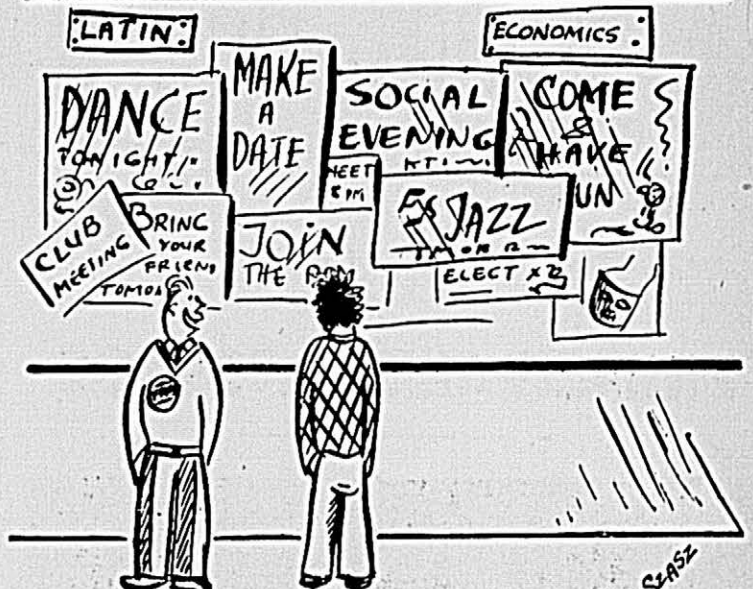 LATIN
ECONOMICS
DANCE
TONIGHT
MAKE
A
DATE
SOCIAL
EVENING
COME
HAVE
UN
MEET
8 PM
CLUB
MEETING
BRING
YOUR
FRIEND
TOMO
JOIN
THE
JAZZ
ELECT
SZASZ